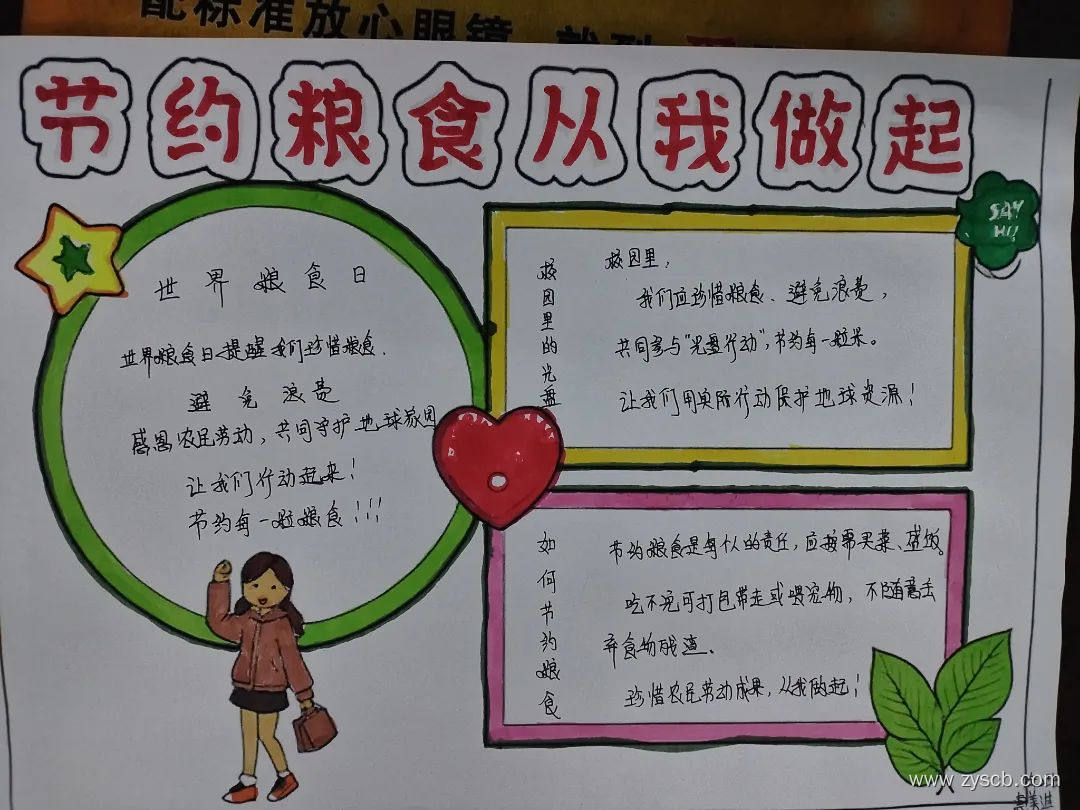 配标准放心眼镜 就到
节约粮食从我做起
SAY
HI!
世界粮食日
世界粮食日提醒我们珍惜粮食.
避免浪费
感恩农民劳动,共同守护地球家园
让我们行动起来!
节约每一粒粮食!!!
校园里的光盘
校园里,
我们应珍惜粮食、避免浪费,
共同参与"光盘行动",节约每一粒米。
让我们用实际行动保护地球资源!
如何节约粮食
节约粮食是每个人的责任,应按需买菜、盛饭。
吃不完可打包带走或喂宠物,不随意丢
弃食物残渣.
珍惜农民劳动成果,从我做起!
www.zyscb.com